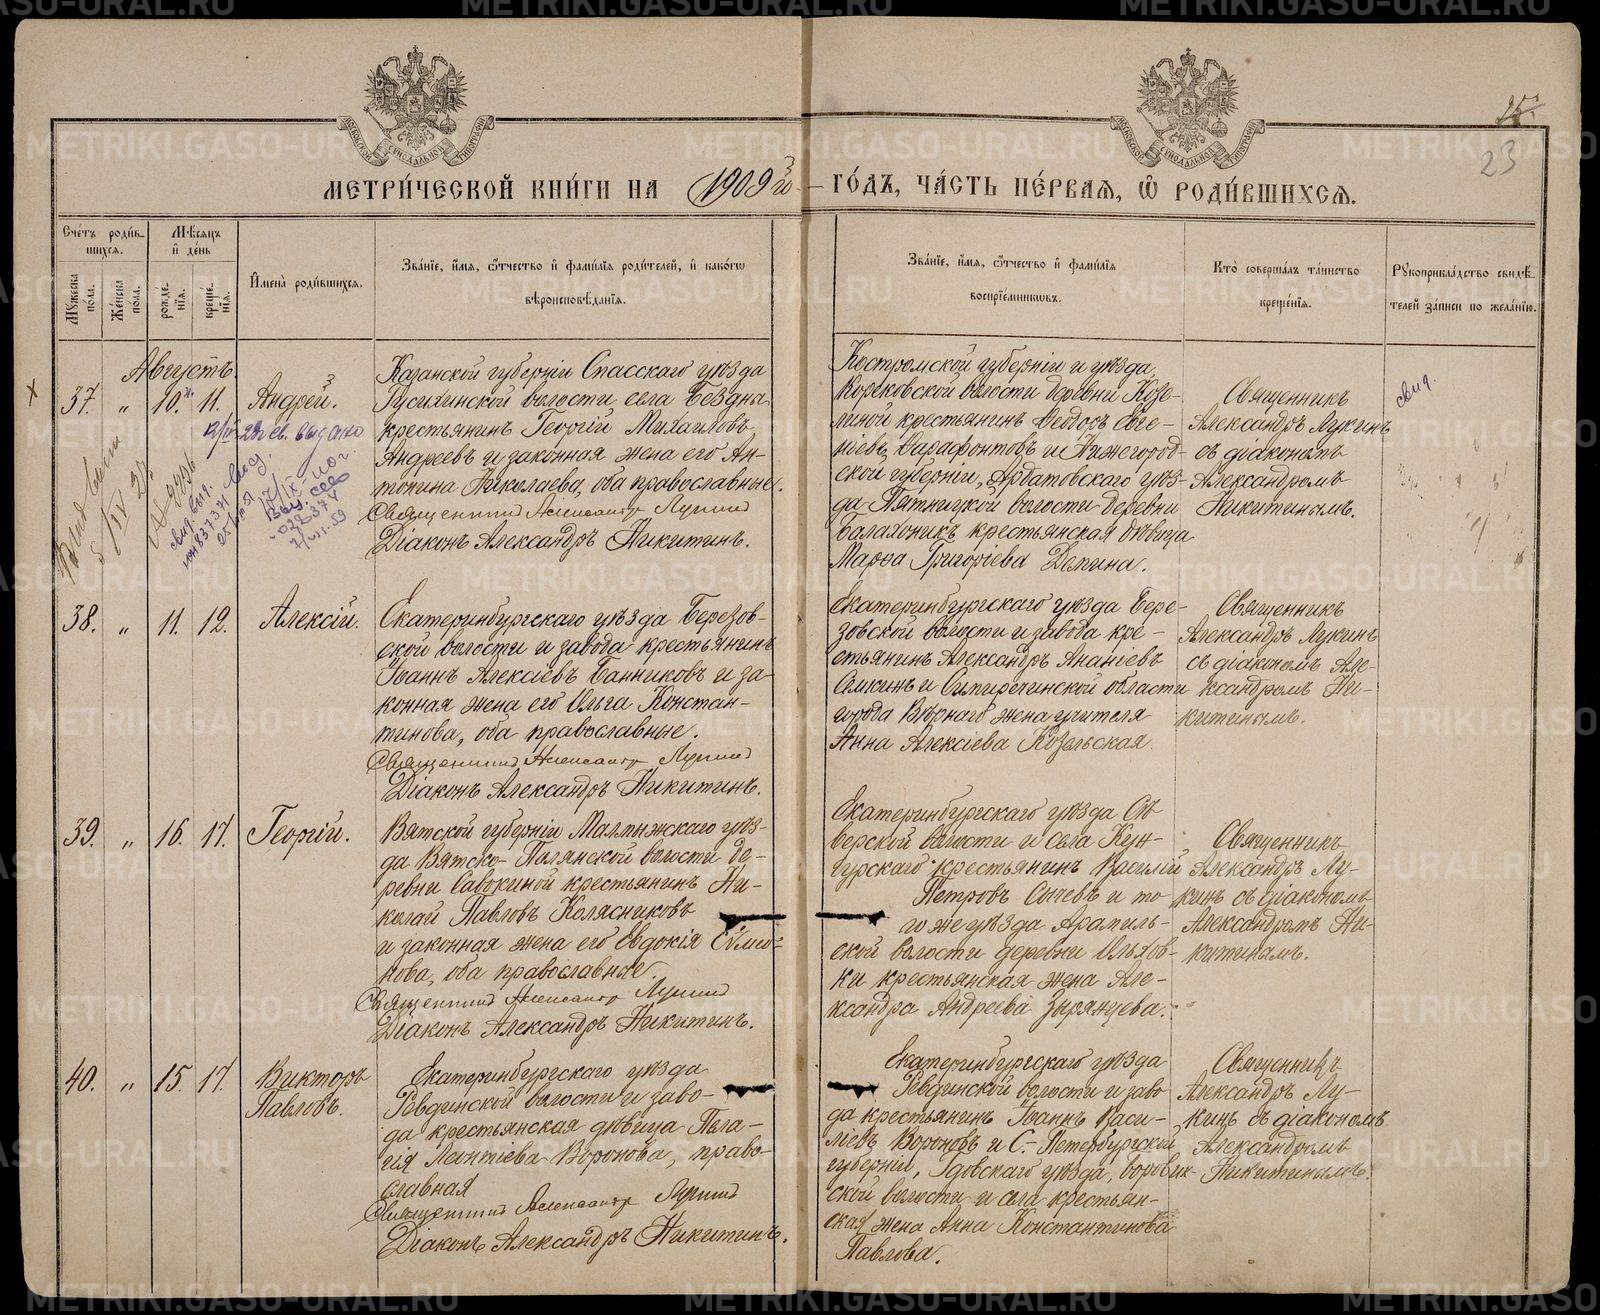 МЕТРИ́ЧЕСКОЙ КНИ́ГИ НА 1909 го ГО́ДЪ, ЧА́СТЬ ПЕ́РВАЯ, Ѽ РОДИ́ВШИХСЯ.
25
23
Сче́тъ роди́в-
шихся.
Мѣ́сяцъ
и҆ де́нь
Мꙋ́жеска по́ла.
Же́нска по́ла.
рожде́-нїя.
креще́-нїя.
И҆мена̀ роди́вшихся.
Зва́нїе, и҆́мя, ѻ҆́тчество и҆ фами́лїя роди́телей, и҆ како́гѡ
вѣроисповѣ́данїя.
Зва́нїе, и҆́мя, ѻ҆́тчество и҆ фами́лїя
воспрїе́мниковъ.
Кто̀ соверша́лъ та́инство
креще́нїя.
Рꙋкоприкла́дство свидѣ́-
телей за́писи по жела́нїю.
Августъ.
37. „ 10. 11. Андрей.
Казанской губерніи Спасскаго уѣзда
Гусихинской волости села Бездна
крестьянинъ Георгій Михаиловъ
Андреевъ и законная жена его Ан-
тонина Николаева, оба православные.
Священникъ Александръ Лукинъ
Діаконъ Александръ Никитинъ.
Костромской губерніи и уѣзда,
Коряковской волости деревни Козе-
линой крестьянинъ Ѳеодоръ Евге-
ніевъ Фарафонтовъ и Нижегород-
ской губерніи, Ардатовскаго уѣз-
да Пятницкой волости деревни
Балахоникъ крестьянская дѣвица
Марѳа Григорьева Демина.
Священникъ
Александръ Лукинъ
съ діакономъ
Александромъ
Никитинымъ.
свид.
38. „ 11. 12. Алексій.
Екатеринбургскаго уѣзда Березов-
ской волости и завода крестьянинъ
Іоаннъ Алексіевъ Банниковъ и за-
конная жена его Ольга Констан-
тинова, оба православные.
Священникъ Александръ Лукинъ
Діаконъ Александръ Никитинъ.
Екатеринбургскаго уѣзда Бере-
зовской волости и завода кре-
стьянинъ Александръ Ананіевъ
и Семиреченской области
города Вѣрнаго жена учителя
Анна Алексіева Козельская.
Священникъ
Александръ Лукинъ
съ діакономъ Але-
ксандромъ Ни-
китинымъ.
39. „ 16. 17. Георгій.
Вятской губерніи Малмыжскаго уѣз-
да Вятско-Полянской волости де-
ревни Савокиной крестьянинъ Ни-
колай Павловъ Колясниковъ
и законная жена его Евдокія Симео-
нова, оба православные.
Священникъ Александръ Лукинъ
Діаконъ Александръ Никитинъ.
Екатеринбургскаго уѣзда Сѣ-
верской волости и села Кун-
гурскаго крестьянинъ Василій
Петровъ Сычевъ и то-
го же уѣзда Арамиль-
ской волости деревни Ольхов-
ки крестьянская жена Але-
ксандра Андреева Зырянцева.
Священникъ
Александръ Лу-
кинъ съ діакономъ
Александромъ Ни-
китинымъ.
40. „ 15. 17. Викторъ
Павловъ.
Екатеринбургскаго уѣзда
Ревдинской волости и заво-
да крестьянская дѣвица Пела-
гія Леонтіева Воронова, право-
славная
Священникъ Александръ Лукинъ
Діаконъ Александръ Никитинъ.
Екатеринбургскаго уѣзда
Ревдинской волости и заво-
да крестьянинъ Іоаннъ Васи-
ліевъ Вороновъ и С.-Петербургской
губерніи, Гдовскаго уѣзда,
ской волости и села крестьян-
ская жена Анна Константинова
Павлова.
Священникъ
Александръ Лу-
кинъ съ діакономъ
Александромъ
Никитинымъ.
METRIKI.GASO-URAL.RU